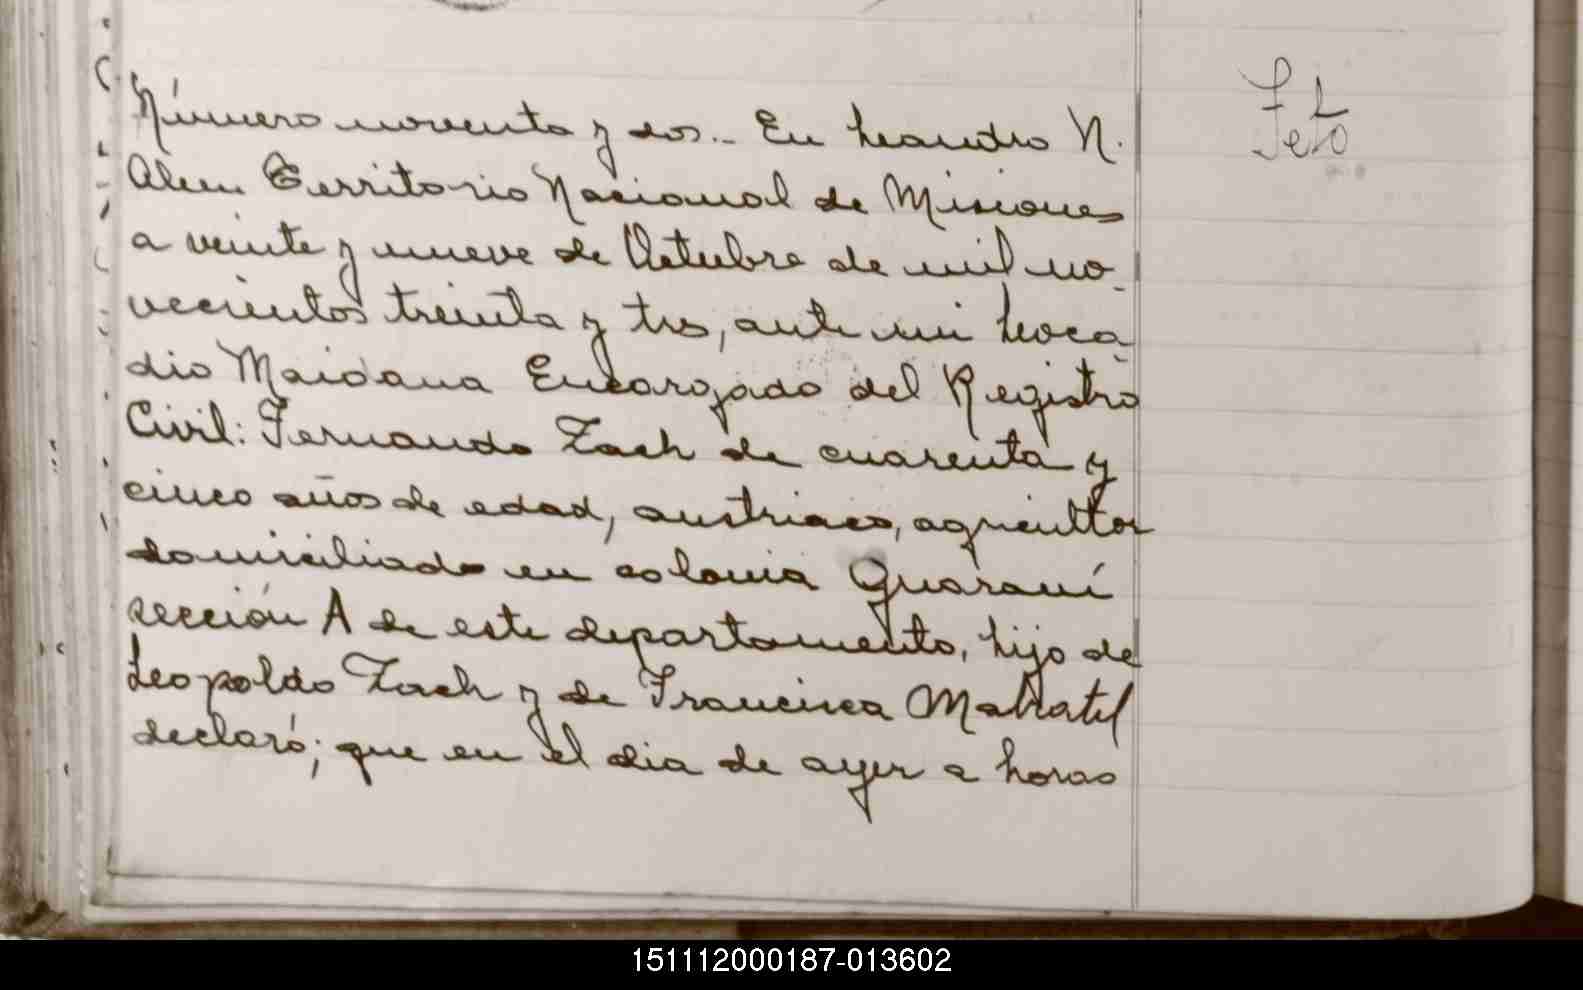 Número noventa y dos.- En Leandro N.
Alem Territorio Nacional de Misiones
a veinte y nueve de Octubre de mil no-
vecientos treinta y tres, ante mi Leoca-
dio Maidana Encargado del Registro
Civil: Fernando Zach de cuarenta y
cinco años de edad, austriaco, agricultor
domiciliado en colonia Guaraní
sección A de este departamento, hijo de
Leopoldo Zach y de Francisca
declaró; que en el dia de ayer a horas
151112000187-013602